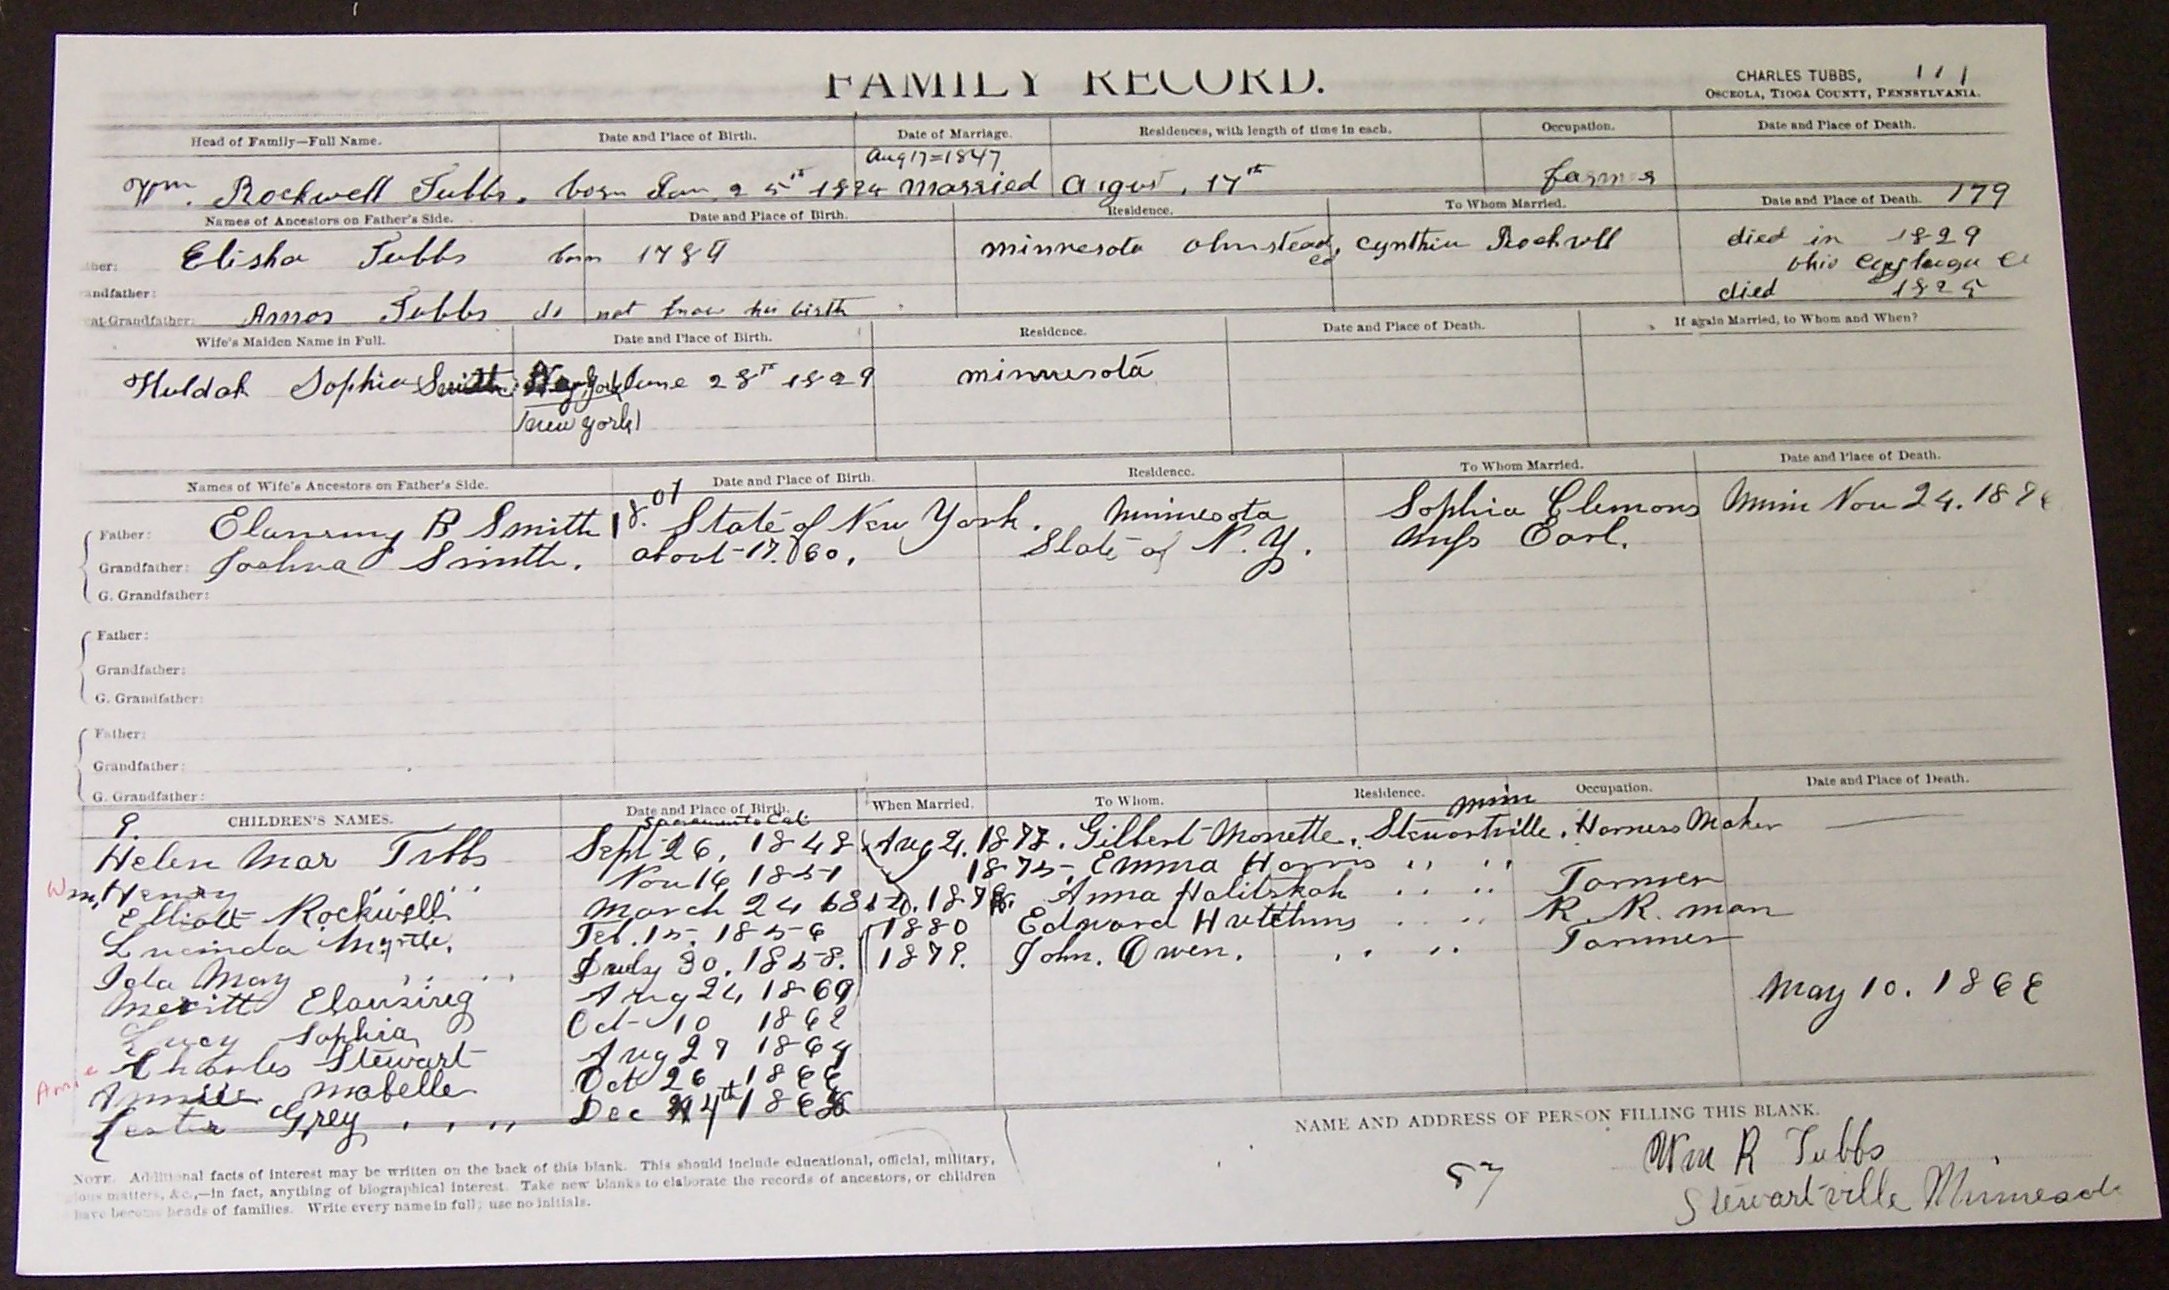 FAMILY RECORD.
CHARLES TUBBS, 111
OSCEOLA, TIOGA COUNTY, PENNSYLVANIA.
Head of Family—Full Name. Date and Place of Birth. Date of Marriage. Residences, with length of time in each. Occupation. Date and Place of Death.
Aug 17=1847
Wm. Rockwell Tubbs. born Jan. 25th 1824 married Aigust, 17th farmer
Names of Ancestors on Father's Side. Date and Place of Birth. Residence. To Whom Married. Date and Place of Death. 179
Elisha Tubbs born 178 minnesota olmstead, co Cynthia Rockwell died in 1829
ohio
andfather: died 1825
at-Grandfather: Amos Tubbs do not know his birth
Wife's Maiden Name in Full. Date and Place of Birth. Residence. Date and Place of Death. If again Married, to Whom and When?
Huldah Sophia Smith June 28th 1829 minnesota
(new york)
Names of Wife's Ancestors on Father's Side. Date and Place of Birth. Residence. To Whom Married. Date and Place of Death.
Father: Elansing B Smith 18.01 State of New York. Minnesota Sophia Clemons Minn Nov 24. 18
Grandfather: Joshua Smith. about 17.60. State of N.Y. Miss Earl.
G. Grandfather:
Father:
Grandfather:
G. Grandfather:
Father:
Grandfather:
G. Grandfather:
9. CHILDREN'S NAMES. Date and Place of Birth. When Married. To Whom. Residence. Occupation. Date and Place of Death.
Sacramento Cal Minn
Helen Mar Tubbs Sept 26, 1848 Aug 4, 1878. Gilbert Monette. Stewartville. Harness Maker
Wm. Henry " " " Nov 16 1851 1875, Emma Harris " "
Elliott Rockwell March 24 1878. Anna Halitskah " " Farmer
Lucinda Myrtle. Feb. 15. 1856 1880 Edward Hutchins " " R. R. man
Ida May " " " July 30. 1858. 1879. John. Owen. " " Farmer
Merritt Elansing Aug 24 1860
Lucy Sophia Oct 10 1862 May 10. 186
Charles Stewart Aug 29 1864
Annie Mabelle Oct 26 1866
Lester Grey " " " Dec 4th 186
NAME AND ADDRESS OF PERSON FILLING THIS BLANK.
Wm R Tubbs
57
Stewartville Minnesota
NOTE. Additional facts of interest may be written on the back of this blank. This should include educational, official, military,
ious matters, &c.,—in fact, anything of biographical interest. Take new blanks to elaborate the records of ancestors, or children
have become heads of families. Write every name in full; use no initials.